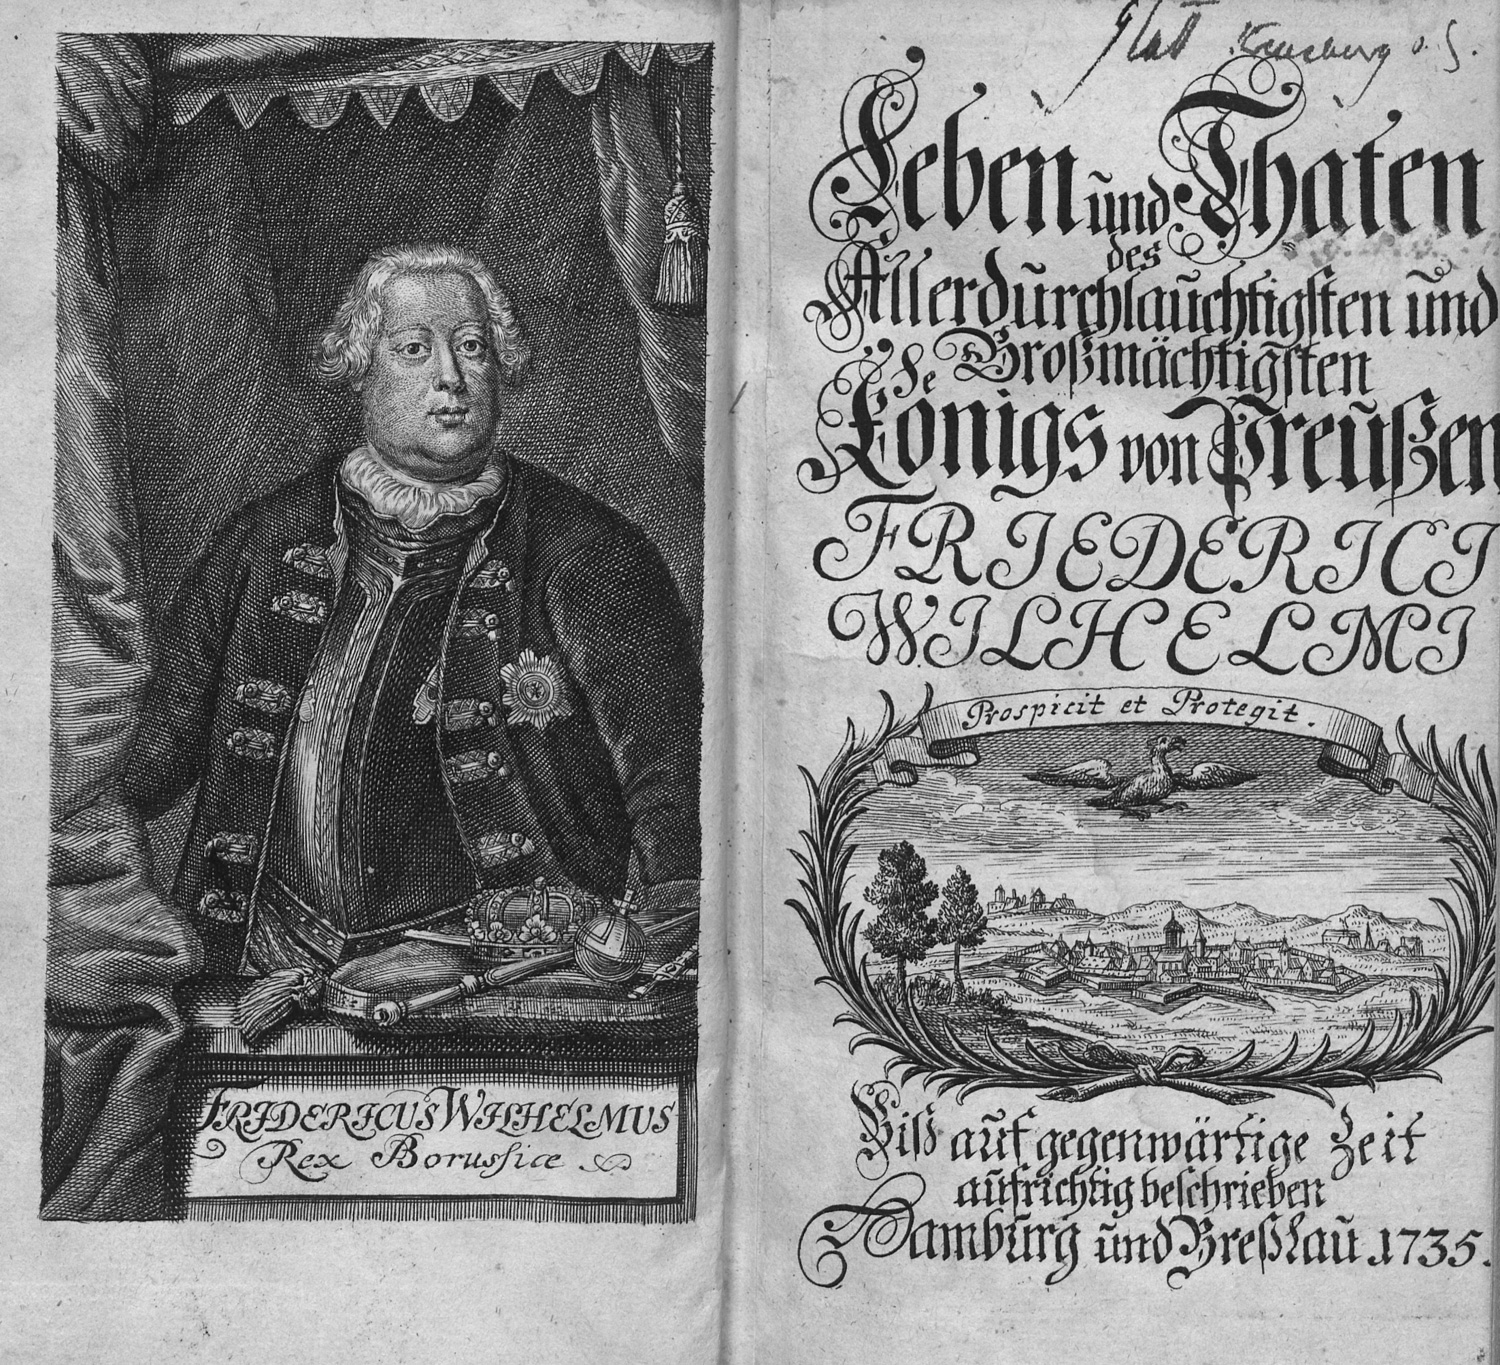 FRIDERICUS WILHELMUS
Rex Borussiæ
Leben und Thaten
des
Allerdurchlauchtigsten und
Großmächtigsten
Königs von Preußen
FRIEDERICI
WILHELMI
Prospicit et Protegit.
Biß auf gegenwärtige Zeit
aufrichtig beschrieben
Hamburg und Breßlau 1735.